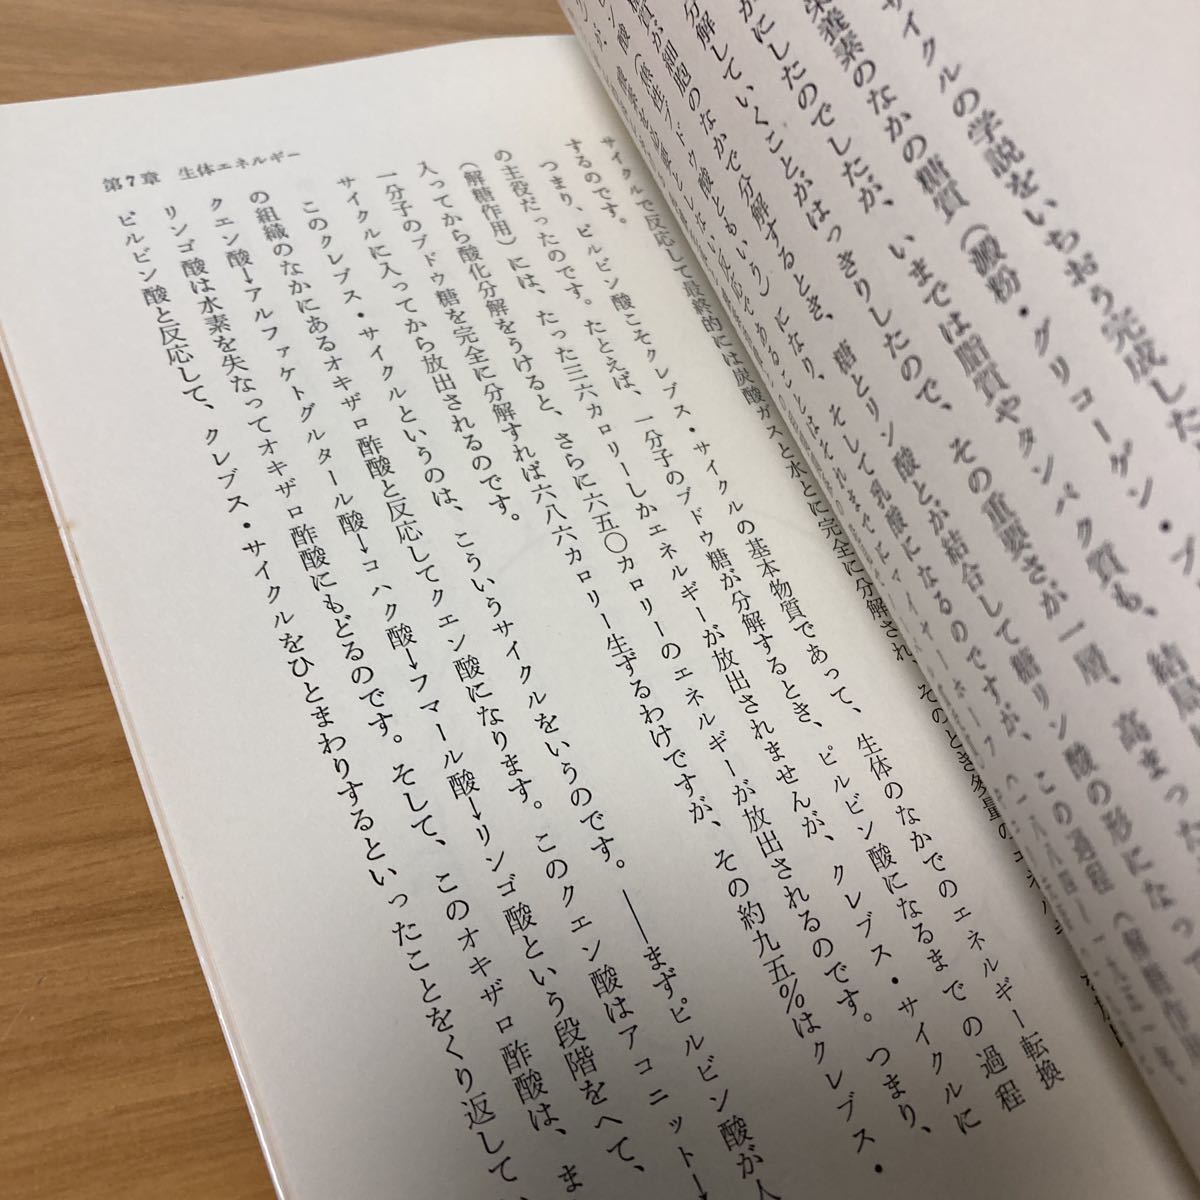 サイクルの学説をいちおう完成した
栄養素のなかの糖質（澱粉・グリコーゲン・ブ
かにしたのでしたが、いまでは脂質やタンパク質も、結局
分解していくことがはっきりしたので、その重要さが一層、高まった
糖質が細胞のなかで分解するとき、糖とリン酸とが結合して糖リン酸の形になって
ン酸（焦性ブドウ酸ともいう）になり、そして乳酸になるのですが、この過程（解糖作用
サイクルで反応して最終的には炭酸ガスと水とに完全に分解され、そのとき多量のエネルギ
するのです。
つまり、ピルビン酸こそクレブス・サイクルの基本物質であって、生体のなかでのエネルギー転換
の主役だったのです。たとえば、一分子のブドウ糖が分解するとき、ピルビン酸になるまでの過程
（解糖作用）には、たった三六カロリーしかエネルギーが放出されませんが、クレブス・サイクルに
入ってから酸化分解をうけると、さらに六五〇カロリーのエネルギーが放出されるのです。つまり、
一分子のブドウ糖を完全に分解すれば六八六カロリー生ずるわけですが、その約九五％はクレブス・
サイクルに入ってから放出されるのです。
このクレブス・サイクルというのは、こういうサイクルをいうのです。――まずピルビン酸が人
の組織のなかにあるオキザロ酢酸と反応してクエン酸になります。このクエン酸はアコニット→
クエン酸→アルファケトグルタール酸→コハク酸→フマール酸→リンゴ酸という段階をへて、
リンゴ酸は水素を失なってオキザロ酢酸にもどるのです。そして、このオキザロ酢酸は、ま
ピルビン酸と反応して、クレブス・サイクルをひとまわりするといったことをくり返して
第7章　生体エネルギー